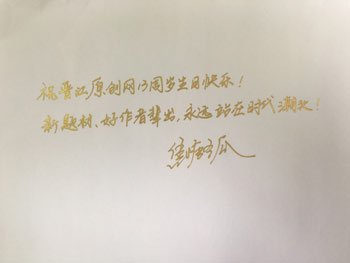 祝晋江原创网13周岁生日快乐！
新题材、好作者辈出，永远站在时代潮头！
焦糖冬瓜